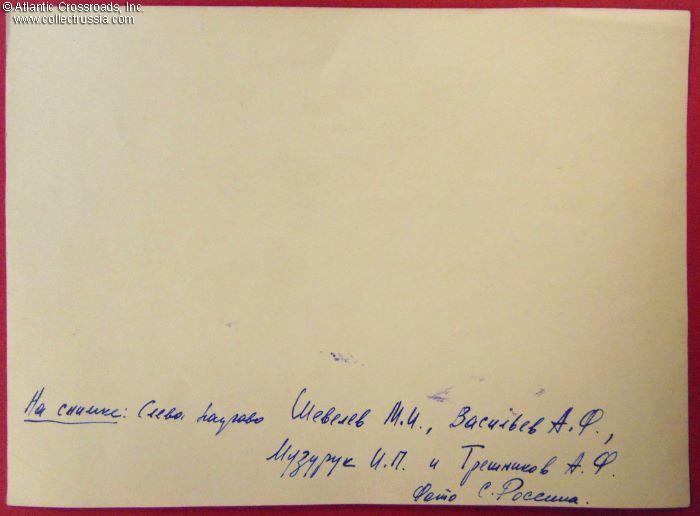 © Atlantic Crossroads, Inc.
www.collectrussia.com
На снимке: Слева направо Шевелев М.И., Васильев А.Ф.,
Мазурук И.П. и Трешников А.Ф.
Фото С. Россина.